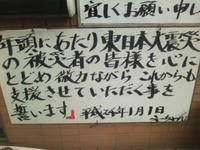 宜しくお願い申し
年頭にあたり東日本大震災
の被災者の皆様を心に
とどめ微力ながらこれからも
支援させていただく事を
誓います。平成26年1月1日